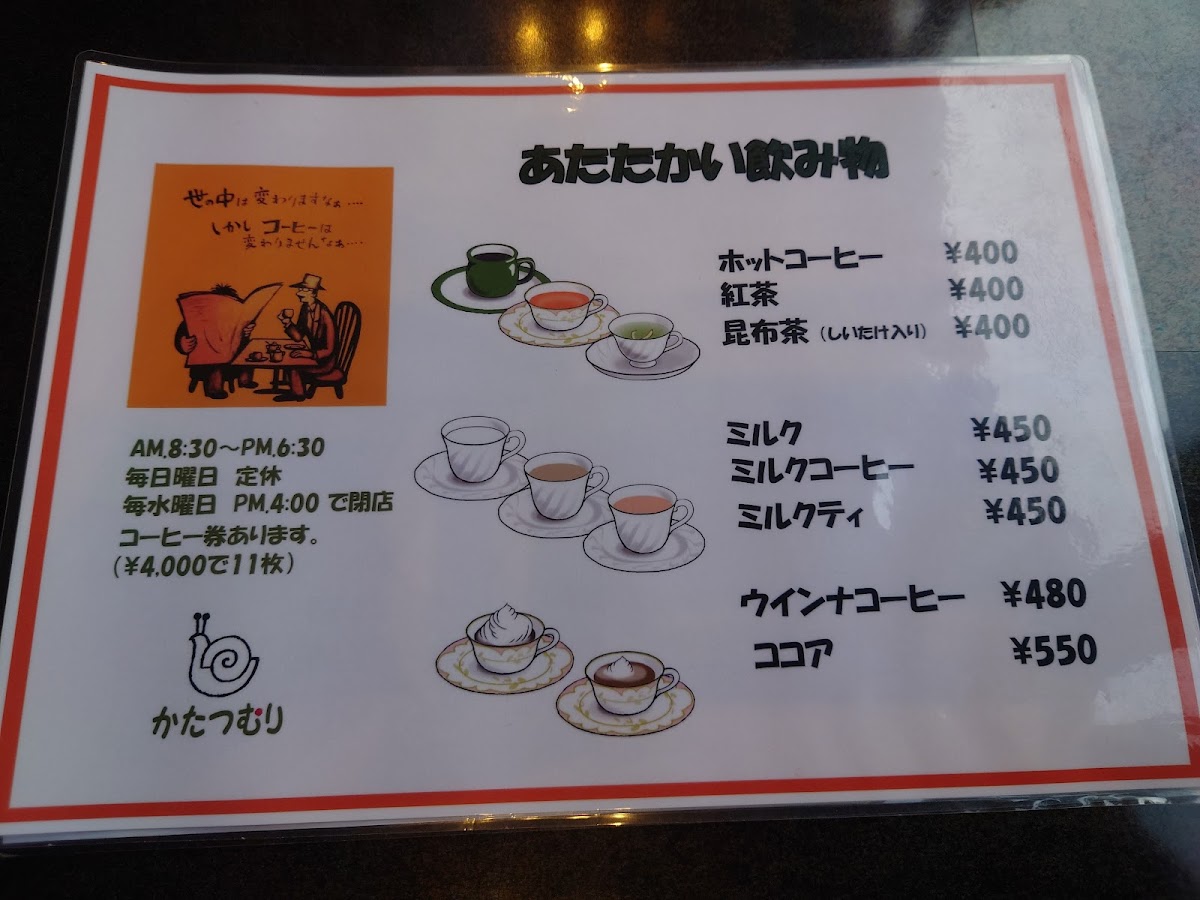 あたたかい飲み物
世の中は変わりますなぁ....
しかし コーヒーは
変わりませんなぁ....
ホットコーヒー ¥400
紅茶 ¥400
昆布茶 (しいたけ入り) ¥400
ミルク ¥450
ミルクコーヒー ¥450
ミルクティ ¥450
ウインナコーヒー ¥480
ココア ¥550
AM.8:30〜PM.6:30
毎日曜日 定休
毎水曜日 PM.4:00 で閉店
コーヒー券あります。
(¥4,000で11枚)
かたつむり